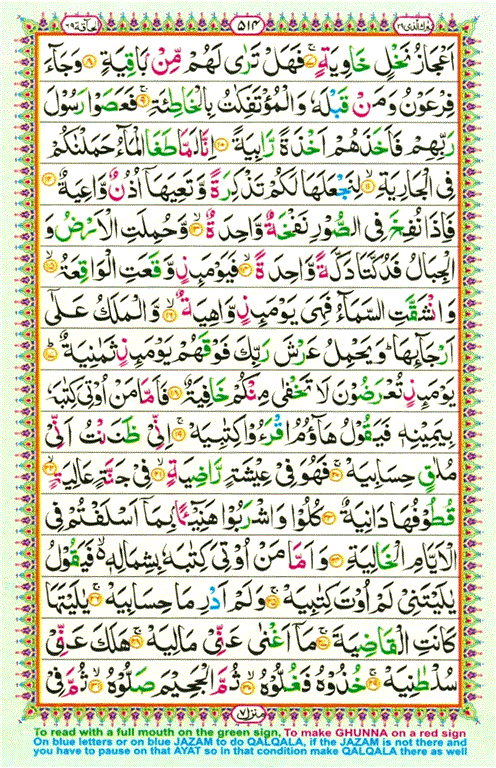 تبٰرک الذی ٢٩
٥١٤
الحآقة ٦٩
اَعۡجَازُ نَخۡلٍ خَاوِيَةٍ ۚ﴿۷﴾ فَهَلۡ تَرٰى لَهُمۡ مِّنۡۢ بَاقِيَةٍ ﴿۸﴾ وَجَآءَ
فِرۡعَوۡنُ وَمَنۡ قَبۡلَهٗ وَالۡمُؤۡتَفِكٰتُ بِالۡخَاطِئَةِ​ۚ ﴿۹﴾ فَعَصَوۡا رَسُوۡلَ
رَبِّهِمۡ فَاَخَذَهُمۡ اَخۡذَةً رَّابِيَةً ﴿۱۰﴾ اِنَّا لَمَّا طَغَا الۡمَآءُ حَمَلۡنٰكُمۡ
فِى الۡجَارِيَةِ ۙ﴿۱۱﴾ لِنَجۡعَلَهَا لَـكُمۡ تَذۡكِرَةً وَّتَعِيَهَاۤ اُذُنٌ وَّاعِيَةٌ ﴿۱۲﴾
فَاِذَا نُفِخَ فِى الصُّوۡرِ نَفۡخَةٌ وَّاحِدَةٌ ۙ﴿۱۳﴾ وَحُمِلَتِ الۡاَرۡضُ وَ
الۡجِبَالُ فَدُكَّتَا دَكَّةً وَّاحِدَةً ۙ﴿۱۴﴾ فَيَوۡمَئِذٍ وَّقَعَتِ الۡوَاقِعَةُ ۙ﴿۱۵﴾
وَانْشَقَّتِ السَّمَآءُ فَهِىَ يَوۡمَئِذٍ وَّاهِيَةٌ ۙ﴿۱۶﴾ وَّالۡمَلَكُ عَلٰٓى
اَرۡجَآئِهَا ​ؕ وَيَحۡمِلُ عَرۡشَ رَبِّكَ فَوۡقَهُمۡ يَوۡمَئِذٍ ثَمٰنِيَةٌ ؕ﴿۱۷﴾
يَوۡمَئِذٍ تُعۡرَضُوۡنَ لَا تَخۡفٰى مِنۡكُمۡ خَافِيَةٌ ﴿۱۸﴾ فَاَمَّا مَنۡ اُوۡتِىَ كِتٰبَهٗ
بِيَمِيۡنِهٖۙ فَيَقُوۡلُ هَآؤُمُ اقۡرَءُوۡا كِتٰبِيَهۡ​ۚ ﴿۱۹﴾ اِنِّىۡ ظَنَنۡتُ اَنِّىۡ
مُلٰقٍ حِسَابِيَهۡ​ۚ ﴿۲۰﴾ فَهُوَ فِىۡ عِيۡشَةٍ رَّاضِيَةٍۙ ﴿۲۱﴾ فِىۡ جَنَّةٍ عَالِيَةٍۙ ﴿۲۲﴾
قُطُوۡفُهَا دَانِيَةٌ ﴿۲۳﴾ كُلُوۡا وَاشۡرَبُوۡا هَنِيۡٓئًا ۢ بِمَاۤ اَسۡلَفۡتُمۡ فِى
الۡاَيَّامِ الۡخَـالِيَةِ ﴿۲۴﴾ وَاَمَّا مَنۡ اُوۡتِىَ كِتٰبَهٗ بِشِمَالِهٖ ۙ فَيَقُوۡلُ
يٰلَيۡتَنِىۡ لَمۡ اُوۡتَ كِتٰبِيَهۡ​ۚ ﴿۲۵﴾ وَلَمۡ اَدۡرِ مَا حِسَابِيَهۡ​ۚ ﴿۲۶﴾ يٰلَيۡتَهَا
كَانَتِ الۡقَاضِيَةَ​ ۚ﴿۲۷﴾ مَاۤ اَغۡنٰى عَنِّىۡ مَالِيَهۡۚ ﴿۲۸﴾ هَلَكَ عَنِّىۡ
سُلۡطٰنِيَهۡ​ۚ ﴿۲۹﴾ خُذُوۡهُ فَغُلُّوۡهُ ۙ ﴿۳۰﴾ ثُمَّ الۡجَحِيۡمَ صَلُّوۡهُ ۙ ﴿۳۱﴾ ثُمَّ فِىۡ
منزل ٧
To read with a full mouth on the green sign, To make GHUNNA on a red sign
On blue letters or on blue JAZAM to do QALQALA, if the JAZAM is not there and
you have to pause on that AYAT so in that condition make QALQALA there as well